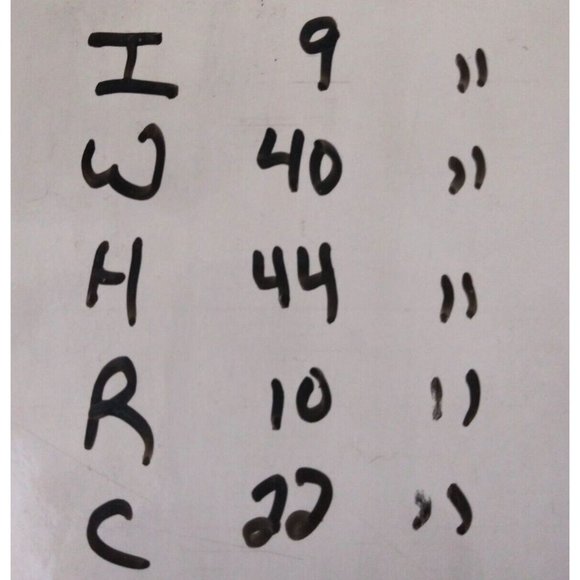 I 9 "
W 40 "
H 44 "
R 10 "
C 22 "